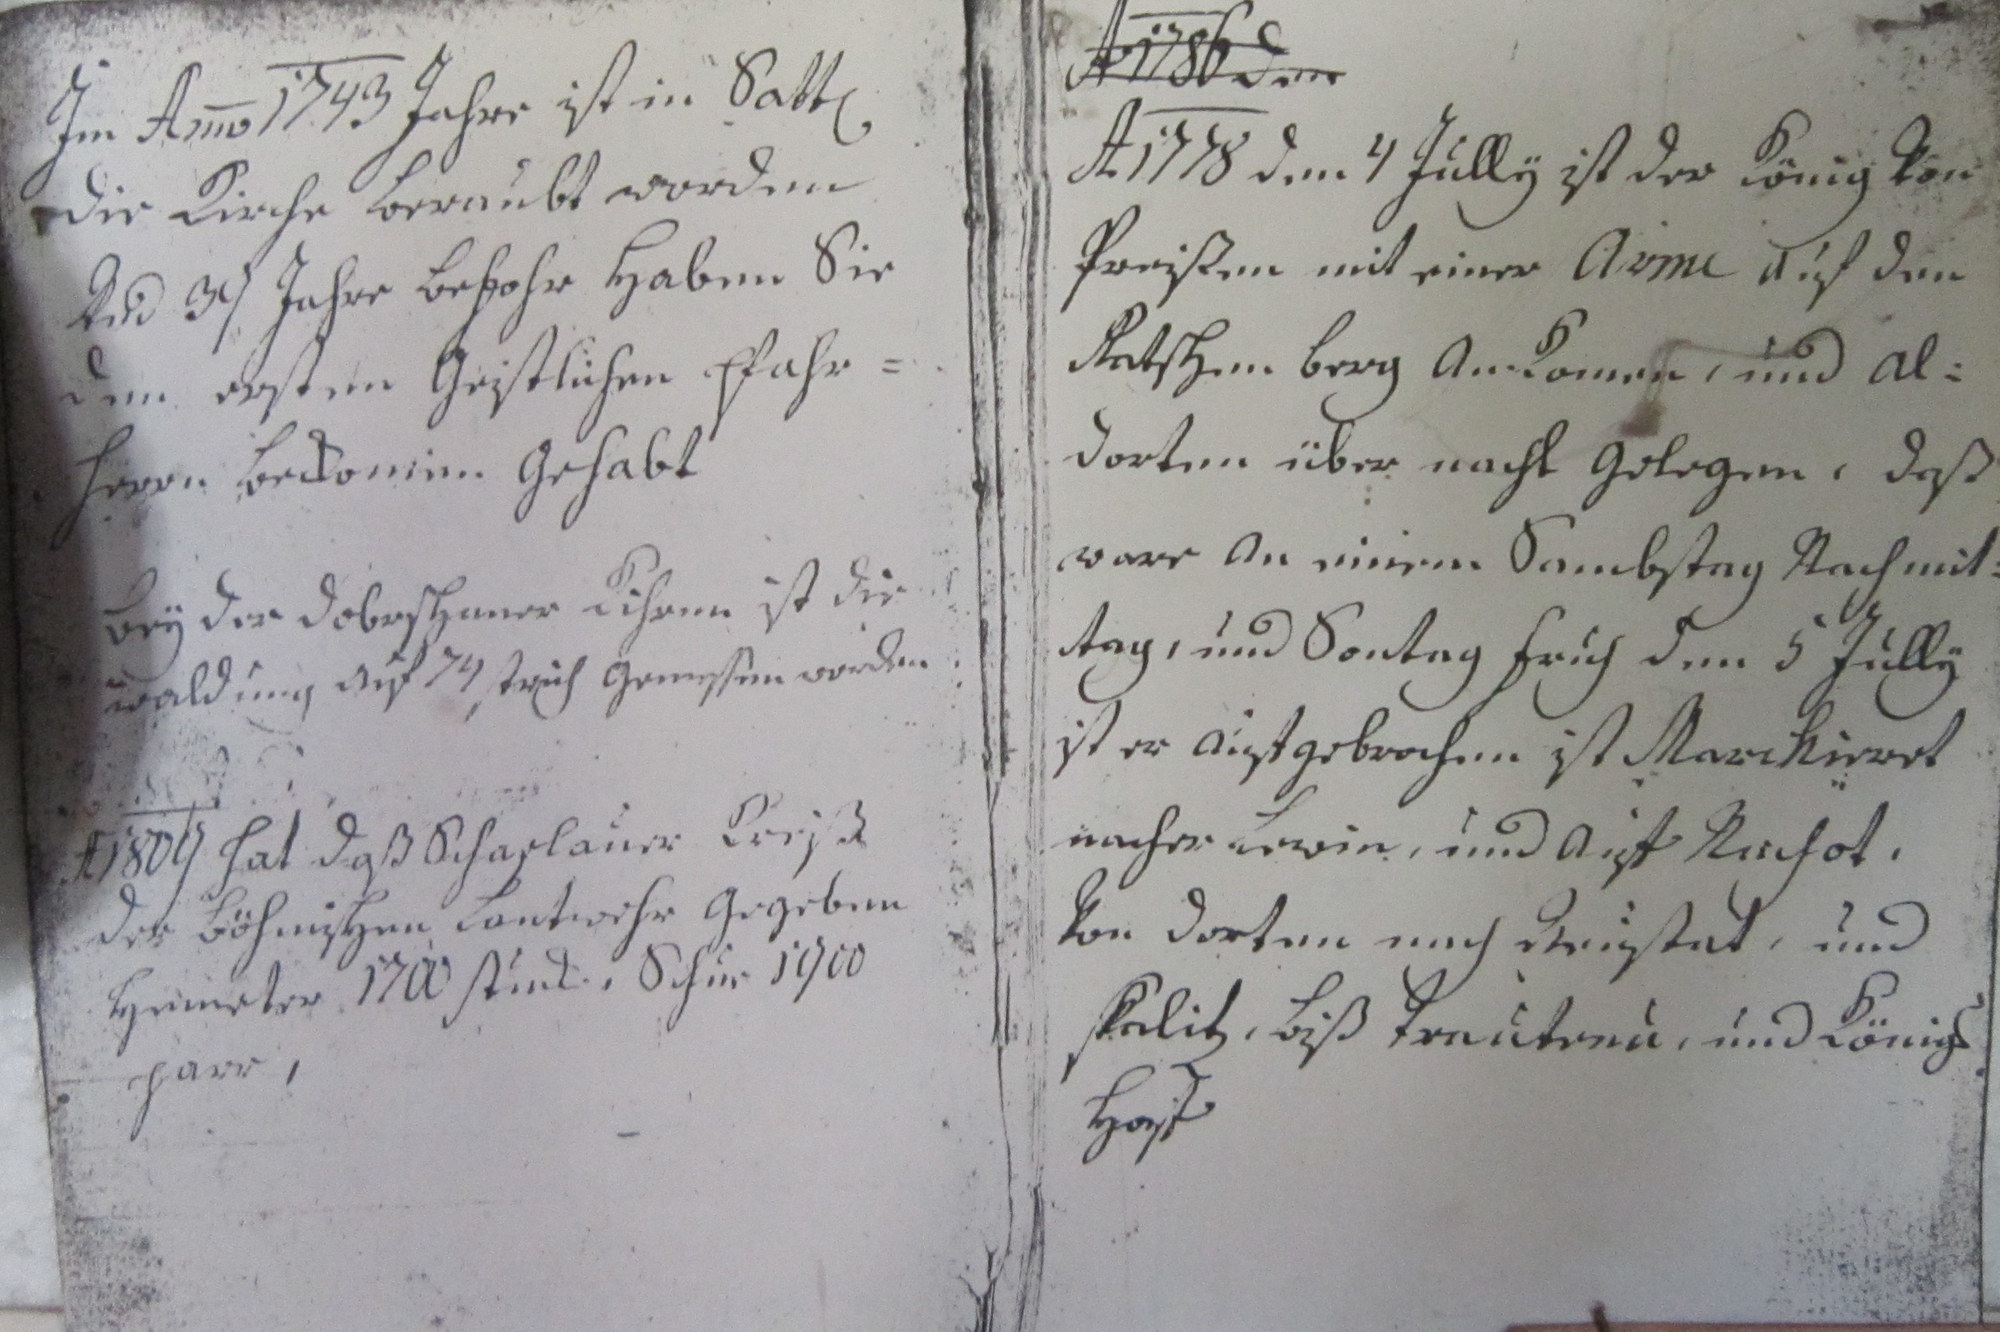 Im Anno 1743 Jahre ist in Sattl
die Kirche beraubt worden
Und 39 Jahre befohr Haben Sie
den ersten Geistlichen Pfahr=
herrn beckomen Gehabt
bey der dobrschaner Kihrnn ist die
waldung auf 74 strich Gemessen worden
A 1809 hat daß Schaslauer Kreiß
der böhmischen Lantwehr Gegeben
Hemeter 1700 stuck, Schue 1900
parr,
A 1786 den
A 1778 den 4 Jully ist der König Von
Preißen mit einer Arme auf den
Ratschen berg An Komen, und al=
dorten über nacht Gelegen, daß
ware An einem Sambstag Nachmit=
tag, und Sontag fruh den 5 Jully
ist er aufgebrochen ist Marchieret
nacher Lewin, und auf Nachot,
Von dorten nach Neustat, und
skalitz, biß Trautenu, und Königs
Hoff